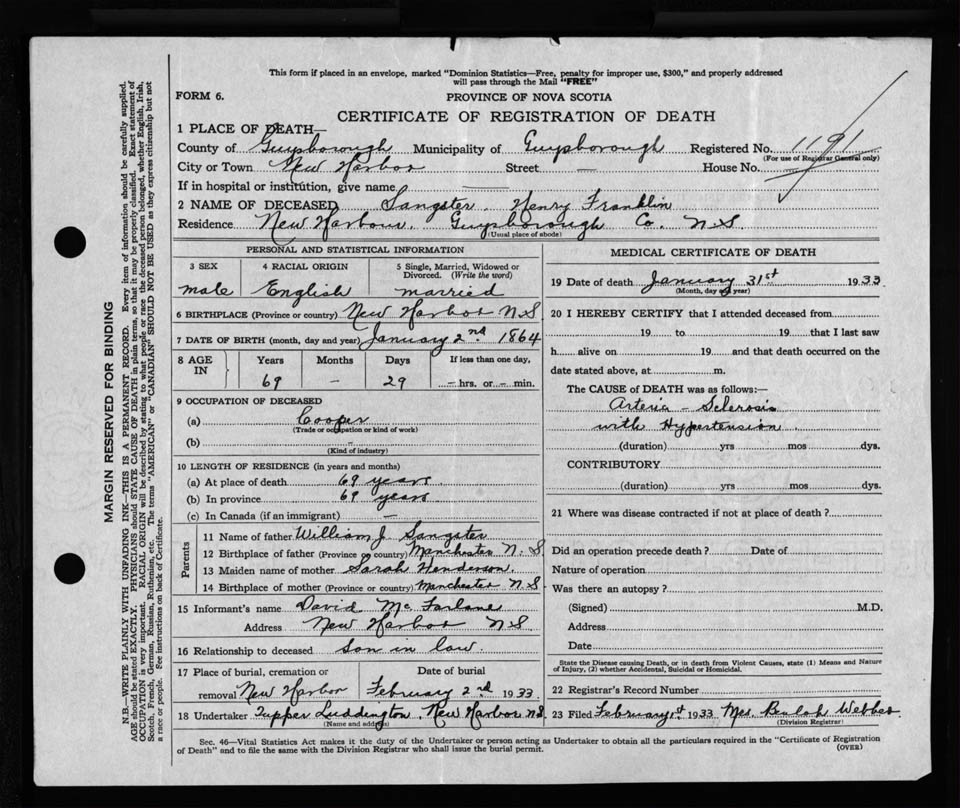 This form if placed in an envelope, marked "Dominion Statistics—Free, penalty for improper use, $300," and properly addressed
will pass through the Mail "FREE"
FORM 6.
PROVINCE OF NOVA SCOTIA
CERTIFICATE OF REGISTRATION OF DEATH
1 PLACE OF DEATH—
County of Guysborough Municipality of Guysborough Registered No. 1191
(For use of Registrar General only)
City or Town New Harbor Street — House No.
If in hospital or institution, give name
2 NAME OF DECEASED Sangster Henry Franklin
Residence New Harbour. Guysborough Co. N S
(Usual place of abode)
PERSONAL AND STATISTICAL INFORMATION
3 SEX 4 RACIAL ORIGIN 5 Single, Married, Widowed or
Divorced. (Write the word)
male English married
6 BIRTHPLACE (Province or country) New Harbor N S
7 DATE OF BIRTH (month, day and year) January 2nd 1864
8 AGE IN Years Months Days If less than one day,
69 — 29 — hrs. or — min.
9 OCCUPATION OF DECEASED
(a) Cooper
(Trade or occupation or kind of work)
(b) -
(Kind of industry)
10 LENGTH OF RESIDENCE (in years and months)
(a) At place of death 69 years
(b) In province 69 years
(c) In Canada (if an immigrant) —
Parents
11 Name of father William J. Sangster
12 Birthplace of father (Province or country) Manchester N. S
13 Maiden name of mother Sarah Henderson
14 Birthplace of mother (Province or country) Manchester N S
15 Informant's name David Mc Farlane
Address New Harbor N S
16 Relationship to deceased Son in law
17 Place of burial, cremation or Date of burial
removal New Harbor February 2nd 1933
18 Undertaker Tupper Luddington. New Harbor N S
(Name and address)
MEDICAL CERTIFICATE OF DEATH
19 Date of death January 31st 1933
(Month, day and year)
20 I HEREBY CERTIFY that I attended deceased from
19 to 19 that I last saw
h alive on 19 and that death occurred on the
date stated above, at m.
The CAUSE of DEATH was as follows:—
Arteria - Sclerosis
with Hypertension
(duration) yrs mos dys.
CONTRIBUTORY
(duration) yrs mos dys.
21 Where was disease contracted if not at place of death?
Did an operation precede death? Date of
Nature of operation
Was there an autopsy?
(Signed) M.D.
Address
Date
State the Disease causing Death, or in death from Violent Causes, state (1) Means and Nature
of Injury, (2) whether Accidental, Suicidal or Homicidal.
22 Registrar's Record Number
23 Filed February 1933 Mrs. Beulah Webber
(Division Registrar)
Sec. 46—Vital Statistics Act makes it the duty of the Undertaker or person acting as Undertaker to obtain all the particulars required in the "Certificate of Registration
of Death" and to file the same with the Division Registrar who shall issue the burial permit.
(OVER)
MARGIN RESERVED FOR BINDING
N.B.—WRITE PLAINLY WITH UNFADING INK—THIS IS A PERMANENT RECORD. Every item of information should be carefully supplied.
AGE should be stated EXACTLY. PHYSICIANS should STATE CAUSE OF DEATH in plain terms, so that it may be properly classified. Exact statement of
OCCUPATION is very important. RACIAL ORIGIN will be described by stating to what people or race the deceased person belonged, whether English, Irish,
Scotch, French, German, Russian, Ruthenian, etc. The terms "AMERICAN" or "CANADIAN" SHOULD NOT BE USED as they express citizenship but not
a race or people. See instructions on back of Certificate.